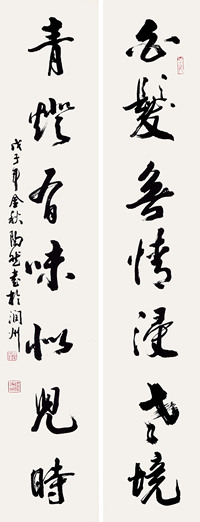 白髮無情浸老境
青燈有味似兒時
戊子年金秋陶然書於润州